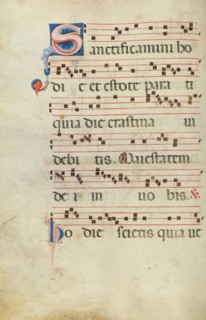 Sanctificamini ho
di e et estote para ti
quia die crastina ui
debi tis. Maiestatem
dei in uo bis. R.
Ho die scietis quia ue